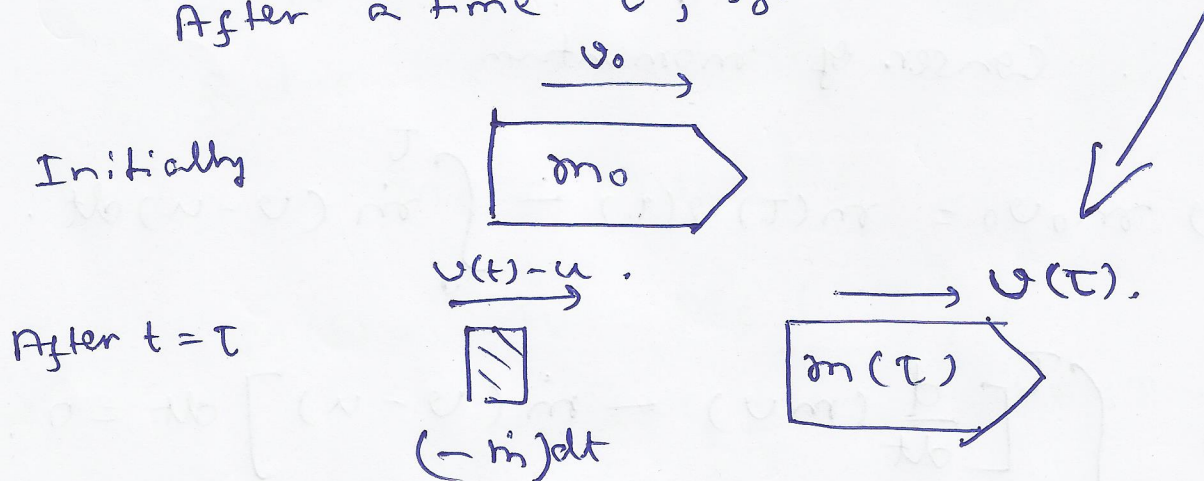 After a time
v₀
Initially
m₀
v(t)-u.
v(τ).
After t = τ
m(τ)
(-ṁ)dt